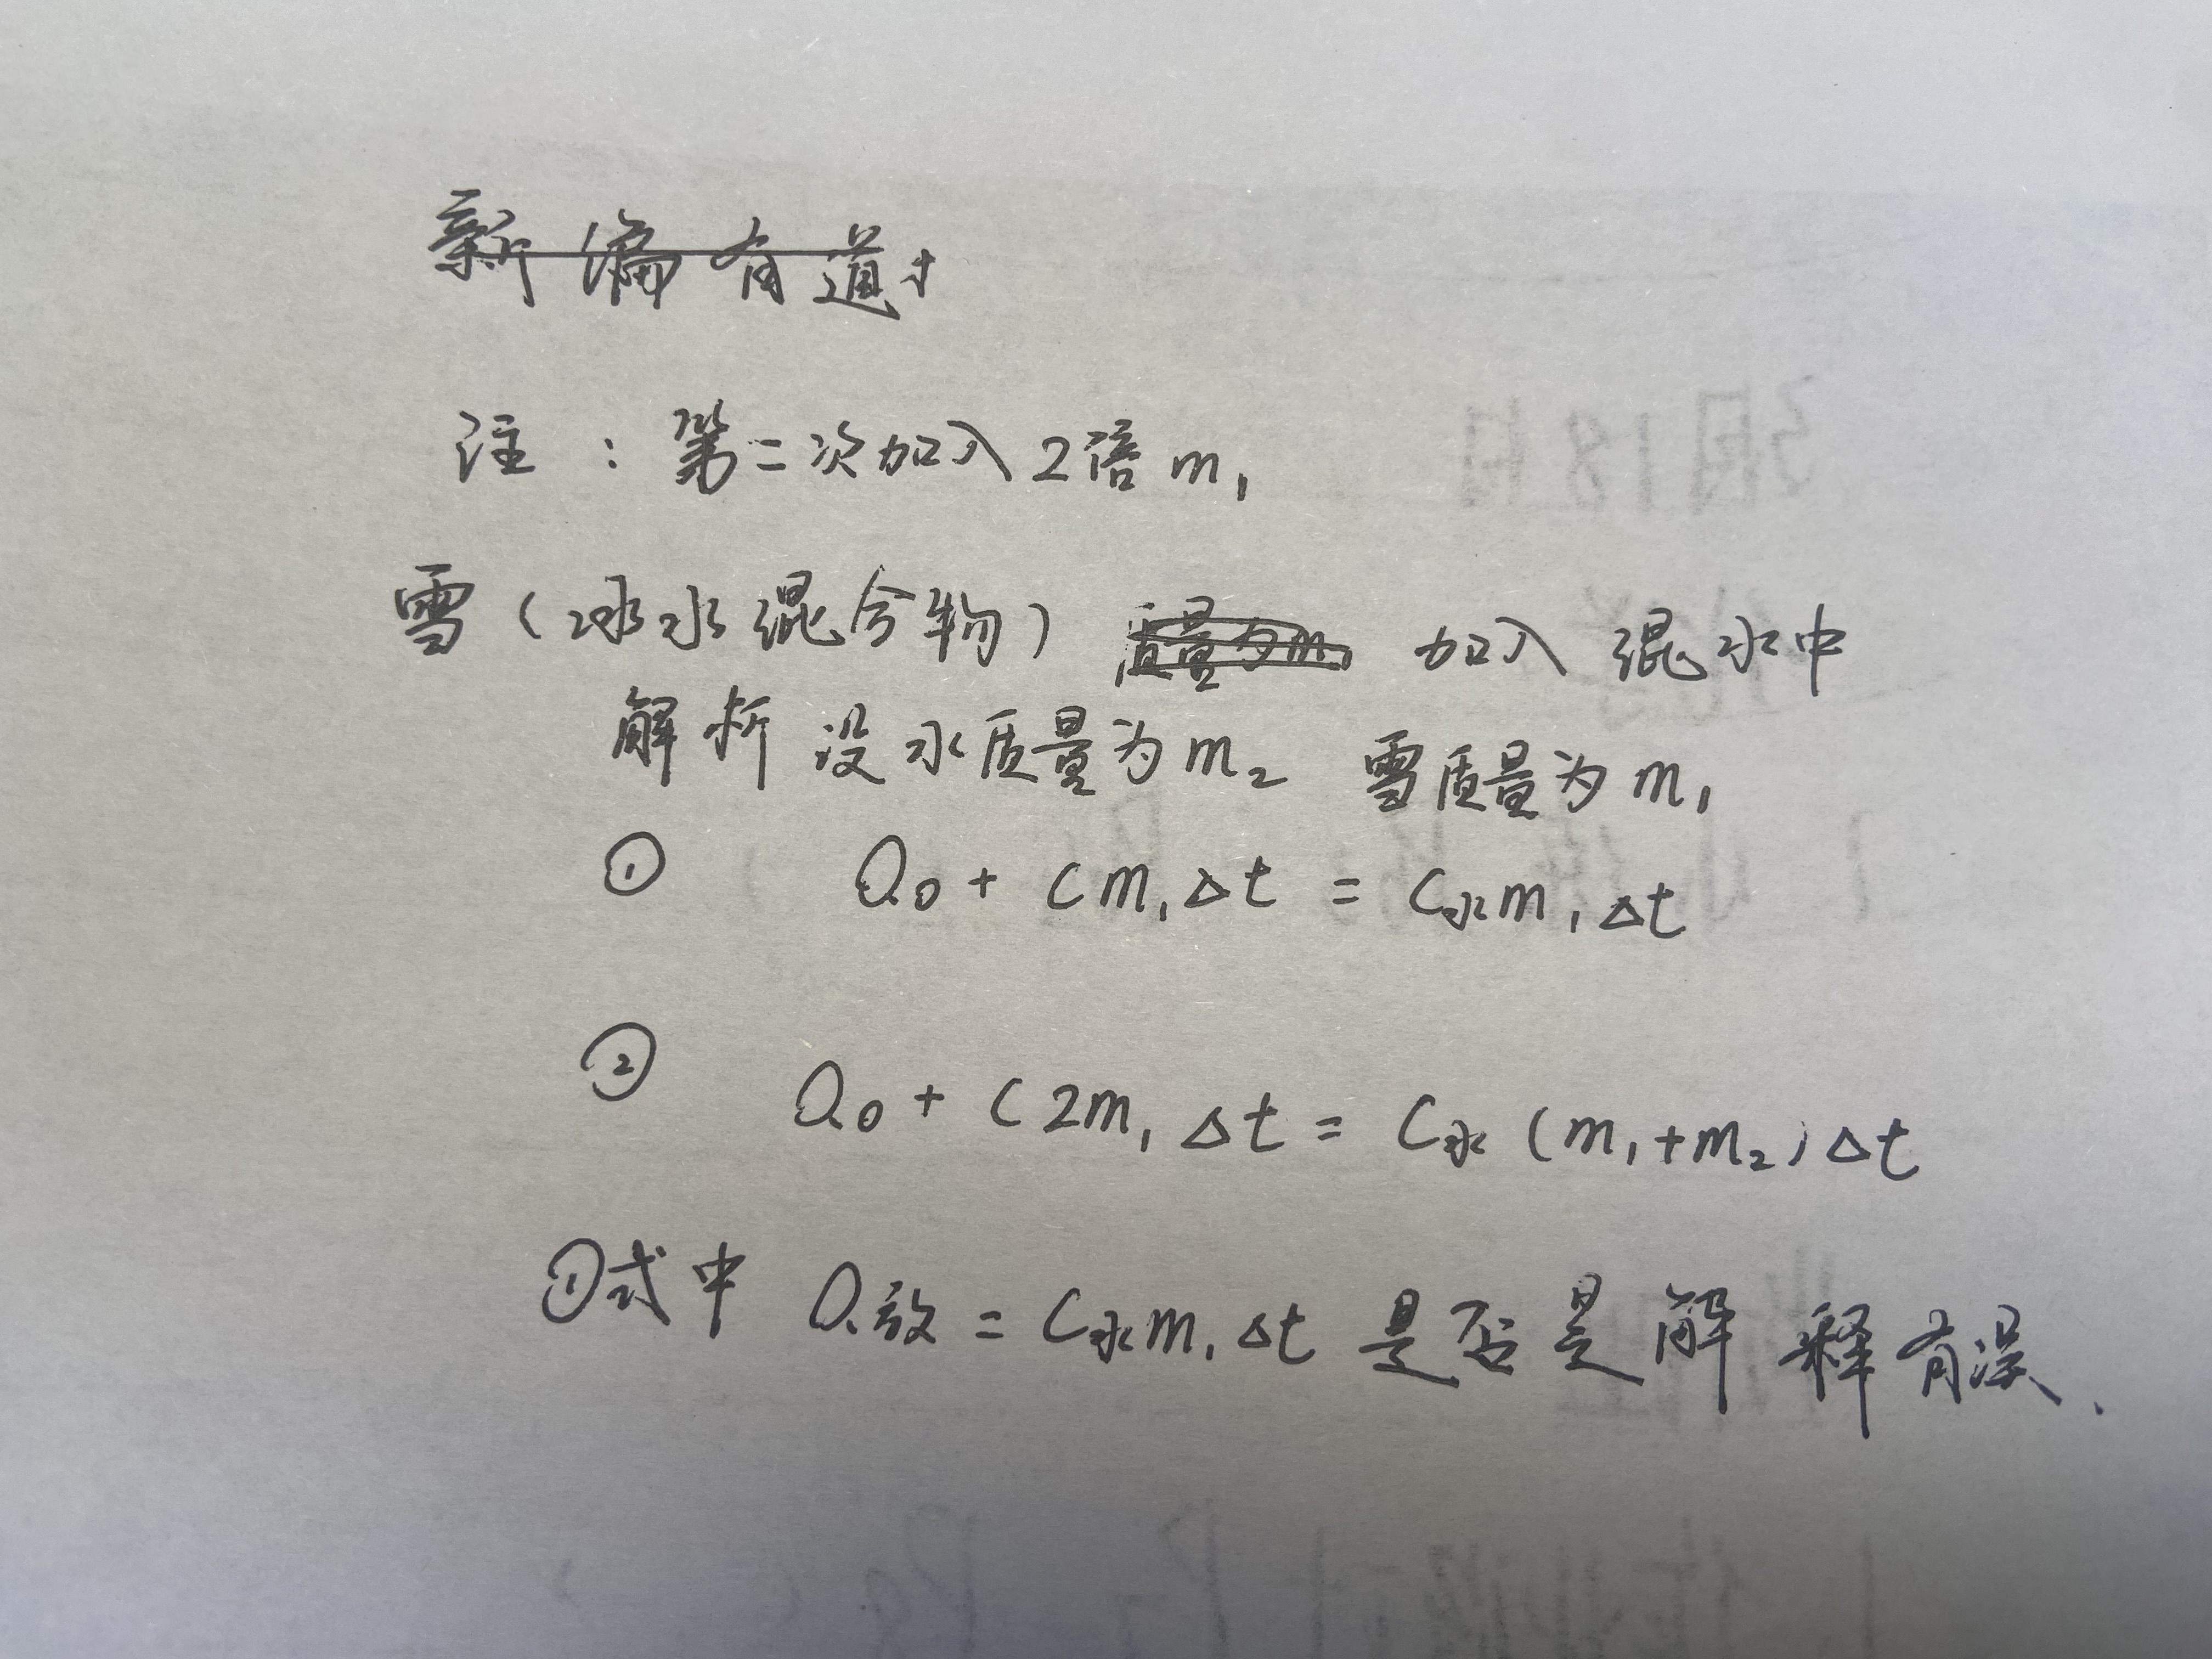 新编有道+
注：第二次加入2倍m₁
雪（冰水混合物） 质量为m₁ 加入 混水中
解析 设水质量为m₂ 雪质量为m₁
① Q₀ + Cm₁Δt = C水m₁Δt
② Q₀ + C2m₁Δt = C水(m₁+m₂)Δt
①式中 Q放 = C水m₁Δt 是否是解释有误.